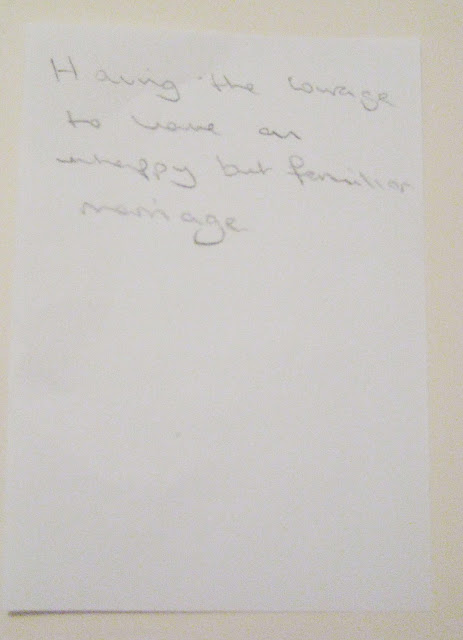 Having the courage
to leave an
unhappy but familiar
marriage